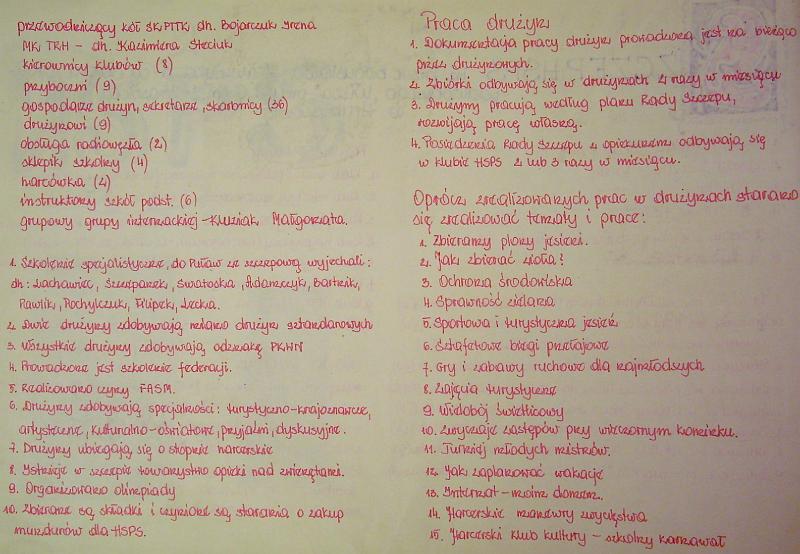 przewodniczący kół SKPTTK dh. Bojarczuk Irena
MK TRH – dh. Kazimiera Steciuk
kierownicy klubów (8)
przyboczni (9)
gospodarze drużyn, sekretarze, skarbnicy (36)
drużynowi (9)
obsługa radiowęzła (2)
sklepik szkolny (4)
harcówka (2)
instruktorzy szkół podst. (6)
grupowy grupy internackiej – Kluzniak Małgorzata.
1. Szkolenie specjalistyczne, do Puław ze szczepową wyjechali:
dh: Lachawiec, Szczepanek, Swatoska, Adamczyk, Bartnik,
Pawlik, Pochylczuk, Filipek, Lecka.
2. Dwie drużyny zdobywają miano drużyn sztandarowych
3. Wszystkie drużyny zdobywają odznakę PKWN
4. Prowadzone jest szkolenie federacji.
5. Realizowano czyny FASM.
6. Drużyny zdobywają specjalności: turystyczno-krajoznawcze,
artystyczne, kulturalno-oświatowe, przyjaźni, dyskusyjne.
7. Drużyny ubiegają się o stopnie harcerskie
8. Istnieje w szczepie towarzystwo opieki nad zwierzętami.
9. Organizowano olimpiady
10. Zbierane są składki i czynione są starania o zakup
mundurów dla HSPS.
Praca drużyn
1. Dokumentacja pracy drużyn prowadzona jest na bieżąco
przez drużynowych.
2. Zbiórki odbywają się w drużynach 2 razy w miesiącu
3. Drużyny pracują według planu Rady Szczepu,
rozwijają pracę własną.
4. Posiedzenia Rady Szczepu z opiekunem odbywają się
w klubie HSPS 2 lub 3 razy w miesiącu.
Oprócz zrealizowanych prac w drużynach starano
się zrealizować tematy i prace:
1. Zbieramy plony jesieni.
2. Jak zbierać zioła?
3. Ochrona środowiska
4. Sprawność zielarza
5. Sportowa i turystyczna jesień
6. Sztafetowe biegi przełajowe
7. Gry i zabawy ruchowe dla najmłodszych
8. Zajęcia turystyczne
9. Wielobój świetlicowy
10. Zwyczaje zastępów przy wieczornym kominku.
11. Turniej młodych mistrzów.
12. Jak zaplanować wakacje
13. Internat – moim domem.
14. Harcerskie manewry zwycięstwa
15. Harcerski klub kultury – szkolny karnawał